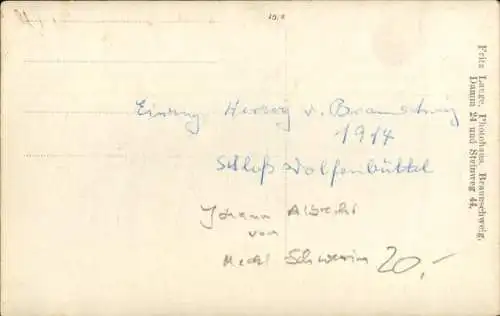 10,8
Einzug Herzog v. Braunschweig
1914
Schloß Wolfenbüttel
Johann Albrecht
von
Meckl Schwerin 20,-
Fritz Lange, Photohaus, Braunschweig,
Damm 24 und Steinweg 44.